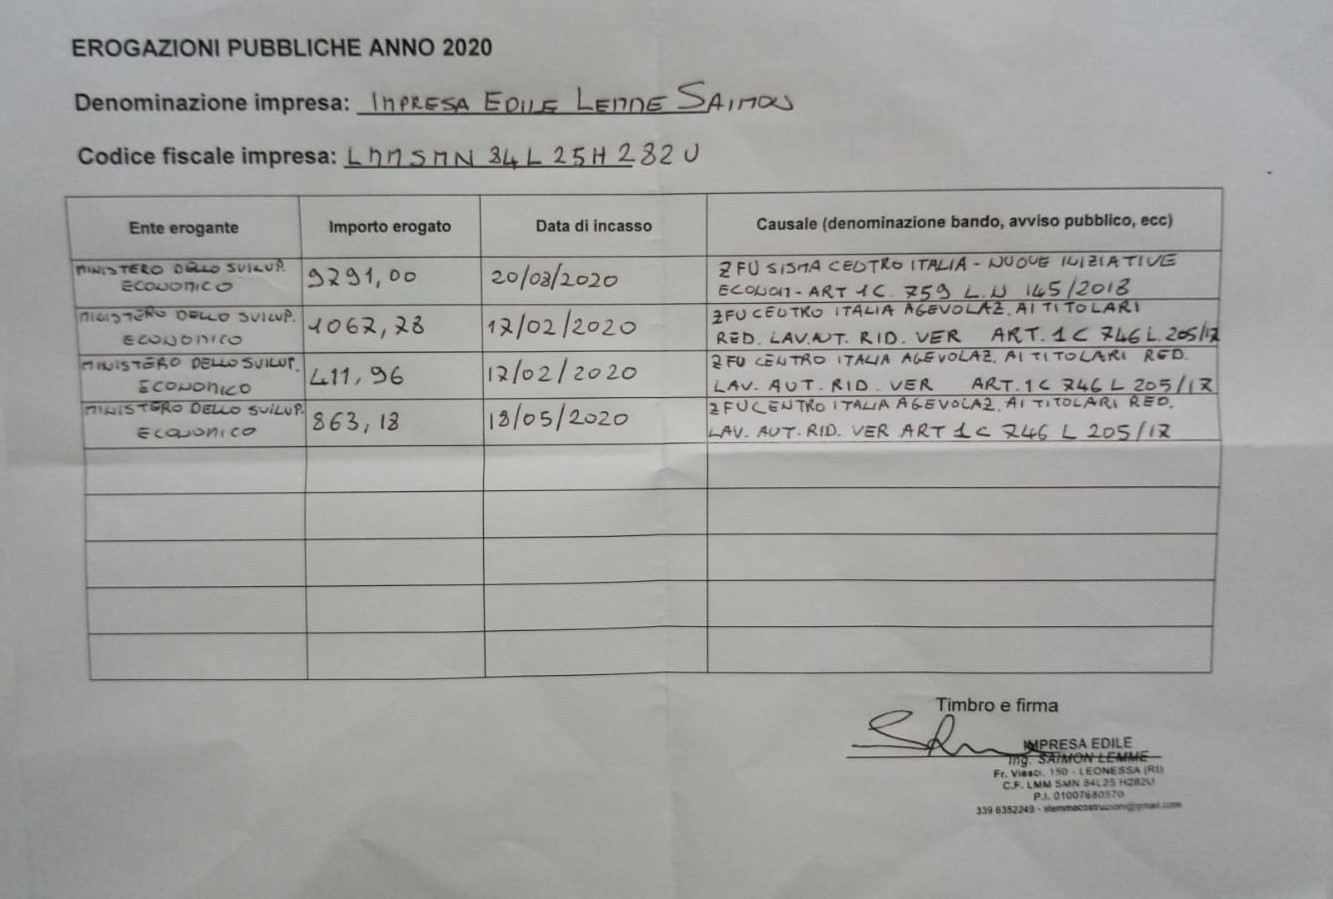 EROGAZIONI PUBBLICHE ANNO 2020
Denominazione impresa: IMPRESA EDILE LEMME SAIMON
Codice fiscale impresa: LMMSMN 84L25H282U
Ente erogante Importo erogato Data di incasso Causale (denominazione bando, avviso pubblico, ecc)
MINISTERO DELLO SVILUP. ECONOMICO 9291,00 20/08/2020 ZFU SISMA CENTRO ITALIA - NUOVE INIZIATIVE
ECONOM - ART 1 C. 759 L. N 145/2018
MINISTERO DELLO SVILUP. ECONOMICO 1067,78 17/02/2020 ZFU CENTRO ITALIA AGEVOLAZ. AI TITOLARI
RED. LAV. AUT. RID. VER ART. 1 C 746 L. 205/17
MINISTERO DELLO SVILUP. ECONOMICO 411,96 17/02/2020 ZFU CENTRO ITALIA AGEVOLAZ. AI TITOLARI RED.
LAV. AUT. RID. VER ART. 1 C 746 L 205/17
MINISTERO DELLO SVILUP. ECONOMICO 863,18 18/05/2020 ZFU CENTRO ITALIA AGEVOLAZ. AI TITOLARI RED.
LAV. AUT. RID. VER ART 1 C 746 L 205/17
Timbro e firma
IMPRESA EDILE
Ing. SAIMON LEMME
Fr. Viesci, 150 - LEONESSA (RI)
C.F. LMM SMN 84L25 H282U
P.I. 01007680570
339 6352249 - slemmecostruzioni@gmail.com